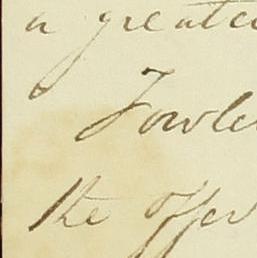 a greate
Fowle
the offer